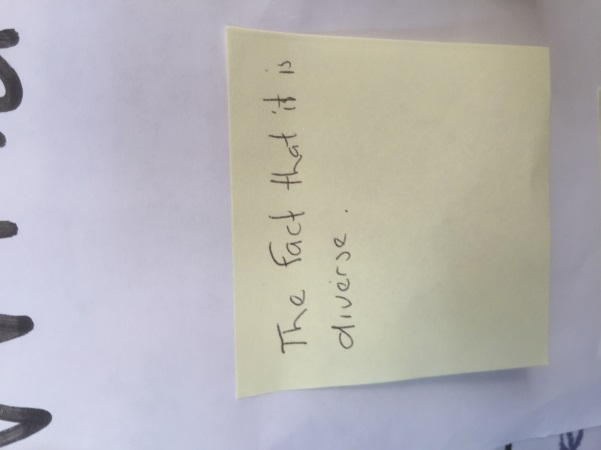 The Fact that it is
diverse.